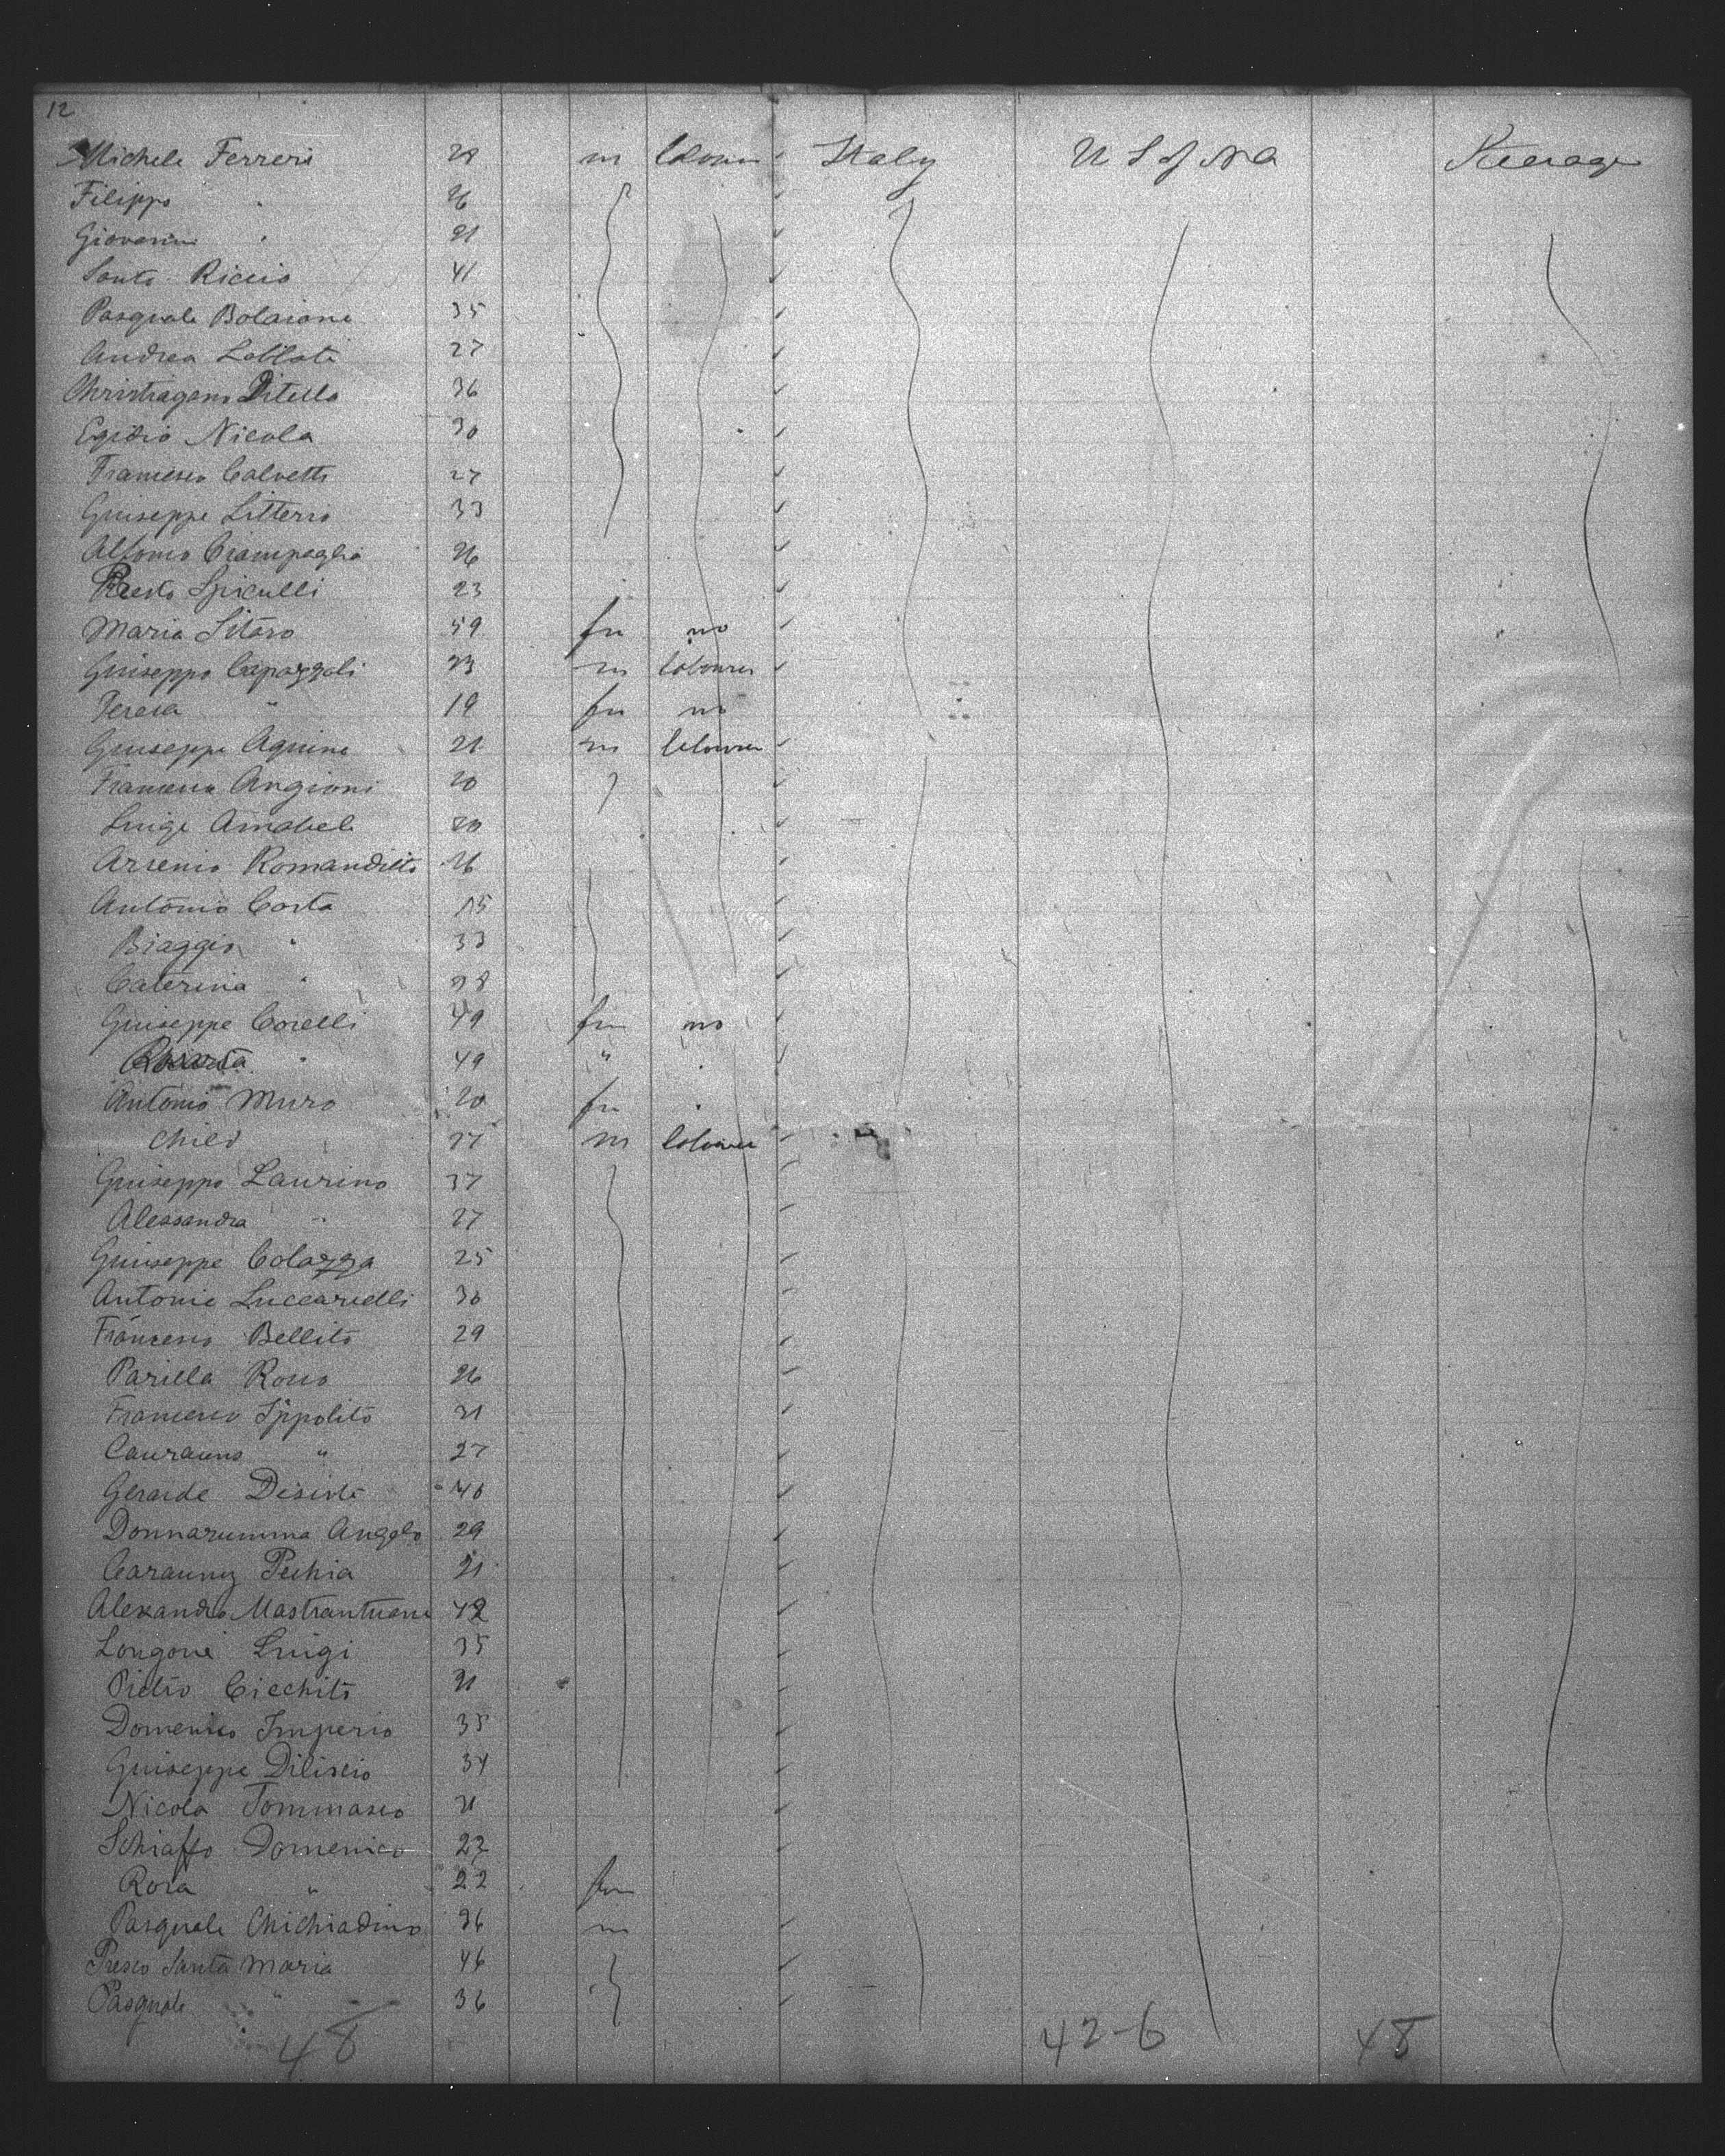 12
Michele Ferreri 28 m labourer Italy U S of N A Steerage
Filippo " 26
Giovanni " 21
Santo Riccio 41
Pasquale Bolaione 35
Andrea Loblati 27
Christiagono Ditello 36
Egidio Nicola 30
Francesco Calvetti 27
Guiseppe Litterio 33
Alfonso Ciampaglia 26
Presto Spiculli 23
Maria Sitaro 59 fm no
Guiseppe Capazzoli 23 m labourer
Teresa " 19 fm no
Guiseppe Aguine 21 m labourer
Francesco Angioni 20
Luigi Amabele 20
Arsenio Romandilto 26
Antonio Costa 15
Biaggio " 33
Caterina " 28
Guiseppe Corelli 49 fm no
" 49 "
Antonio Muro 20 fm
Child 27 m labourer
Guiseppe Laurino 37
Alessandra " 27
Guiseppe Colazza 25
Antonio Luccarelli 30
Francesco Bellito 29
Parilla Rosso 26
Francesco Ippolito 31
Caurauno " 27
Gerarde Desirte 40
Donnarumma Angelo 29
Carauny Pechia 21
Alexandro Mastrantuono 42
Longone Luigi 35
Pietro Ciechito 21
Domenico Imperio 35
Guiseppe Diliscio 34
Nicola Tommasco 21
Schiaffo Domenico 27
Rosa " 22 fm
Pasquale Chichiadino 36 m
Presco Santa Maria 46
Pasquale " 36
48 42-6 48